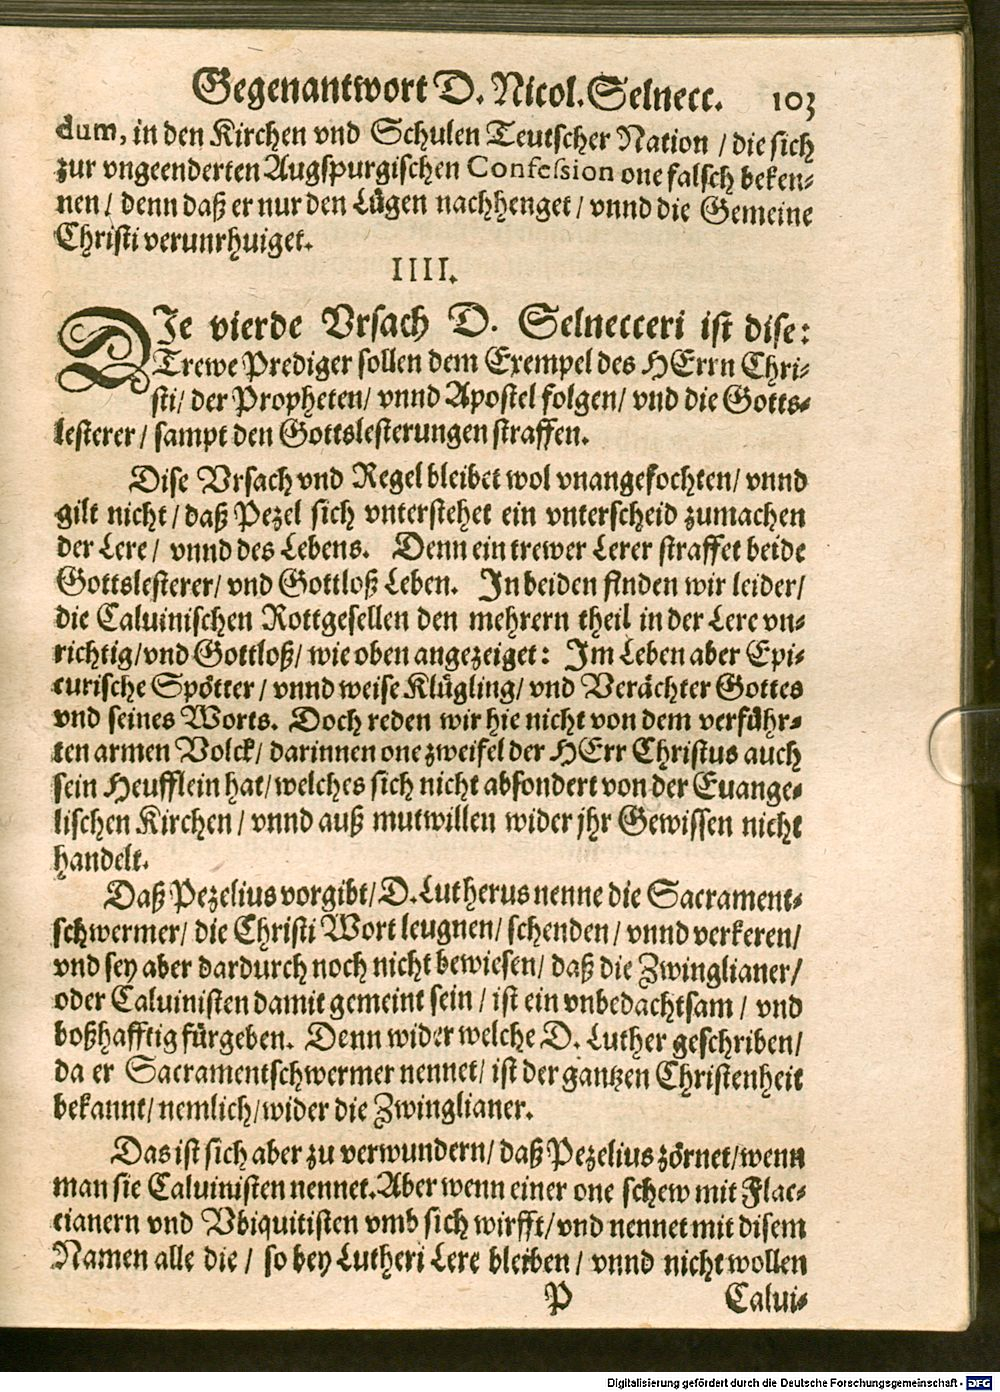 Gegenantwort D. Nicol. Selnecc. 103
dum, in den Kirchen vnd Schulen Teutscher Nation / die sich
zur vngeenderten Augspurgischen Confession one falsch beken-
nen / denn daß er nur den Lügen nachhenget / vnnd die Gemeine
Christi verunrhuiget.
IIII.
DIe vierde Vrsach D. Selnecceri ist dise:
Trewe Prediger sollen dem Exempel des HErrn Chri-
sti / der Propheten / vnnd Apostel folgen / vnd die Gotts-
lesterer / sampt den Gottslesterungen straffen.
Dise Vrsach vnd Regel bleibet wol vnangefochten / vnnd
gilt nicht / daß Pezel sich vnterstehet ein vnterscheid zumachen
der Lere / vnnd des Lebens. Denn ein trewer Lerer straffet beide
Gottslesterer / vnd Gottloß Leben. In beiden finden wir leider /
die Caluinischen Rottgesellen den mehrern theil in der Lere vn-
richtig / vnd Gottloß / wie oben angezeiget: Im Leben aber Epi-
curische Spötter / vnnd weise Klügling / vnd Verächter Gottes
vnd seines Worts. Doch reden wir hie nicht von dem verführ-
ten armen Volck / darinnen one zweifel der HErr Christus auch
sein Heufflein hat / welches sich nicht absondert von der Euange-
lischen Kirchen / vnnd auß mutwillen wider jhr Gewissen nicht
handelt.
Daß Pezelius vorgibt / D. Lutherus nenne die Sacrament-
schwermer / die Christi Wort leugnen / schenden / vnnd verkeren /
vnd sey aber dardurch noch nicht bewiesen / daß die Zwinglianer /
oder Caluinisten damit gemeint sein / ist ein vnbedachtsam / vnd
boßhafftig fürgeben. Denn wider welche D. Luther geschriben /
da er Sacramentschwermer nennet / ist der gantzen Christenheit
bekannt / nemlich / wider die Zwinglianer.
Das ist sich aber zu verwundern / daß Pezelius zörnet / wenn
man sie Caluinisten nennet. Aber wenn einer one schew mit Flac-
cianern vnd Vbiquitisten vmb sich wirfft / vnd nennet mit disem
Namen alle die / so bey Lutheri Lere bleiben / vnnd nicht wollen
P Calui-
Digitalisierung gefördert durch die Deutsche Forschungsgemeinschaft - DFG